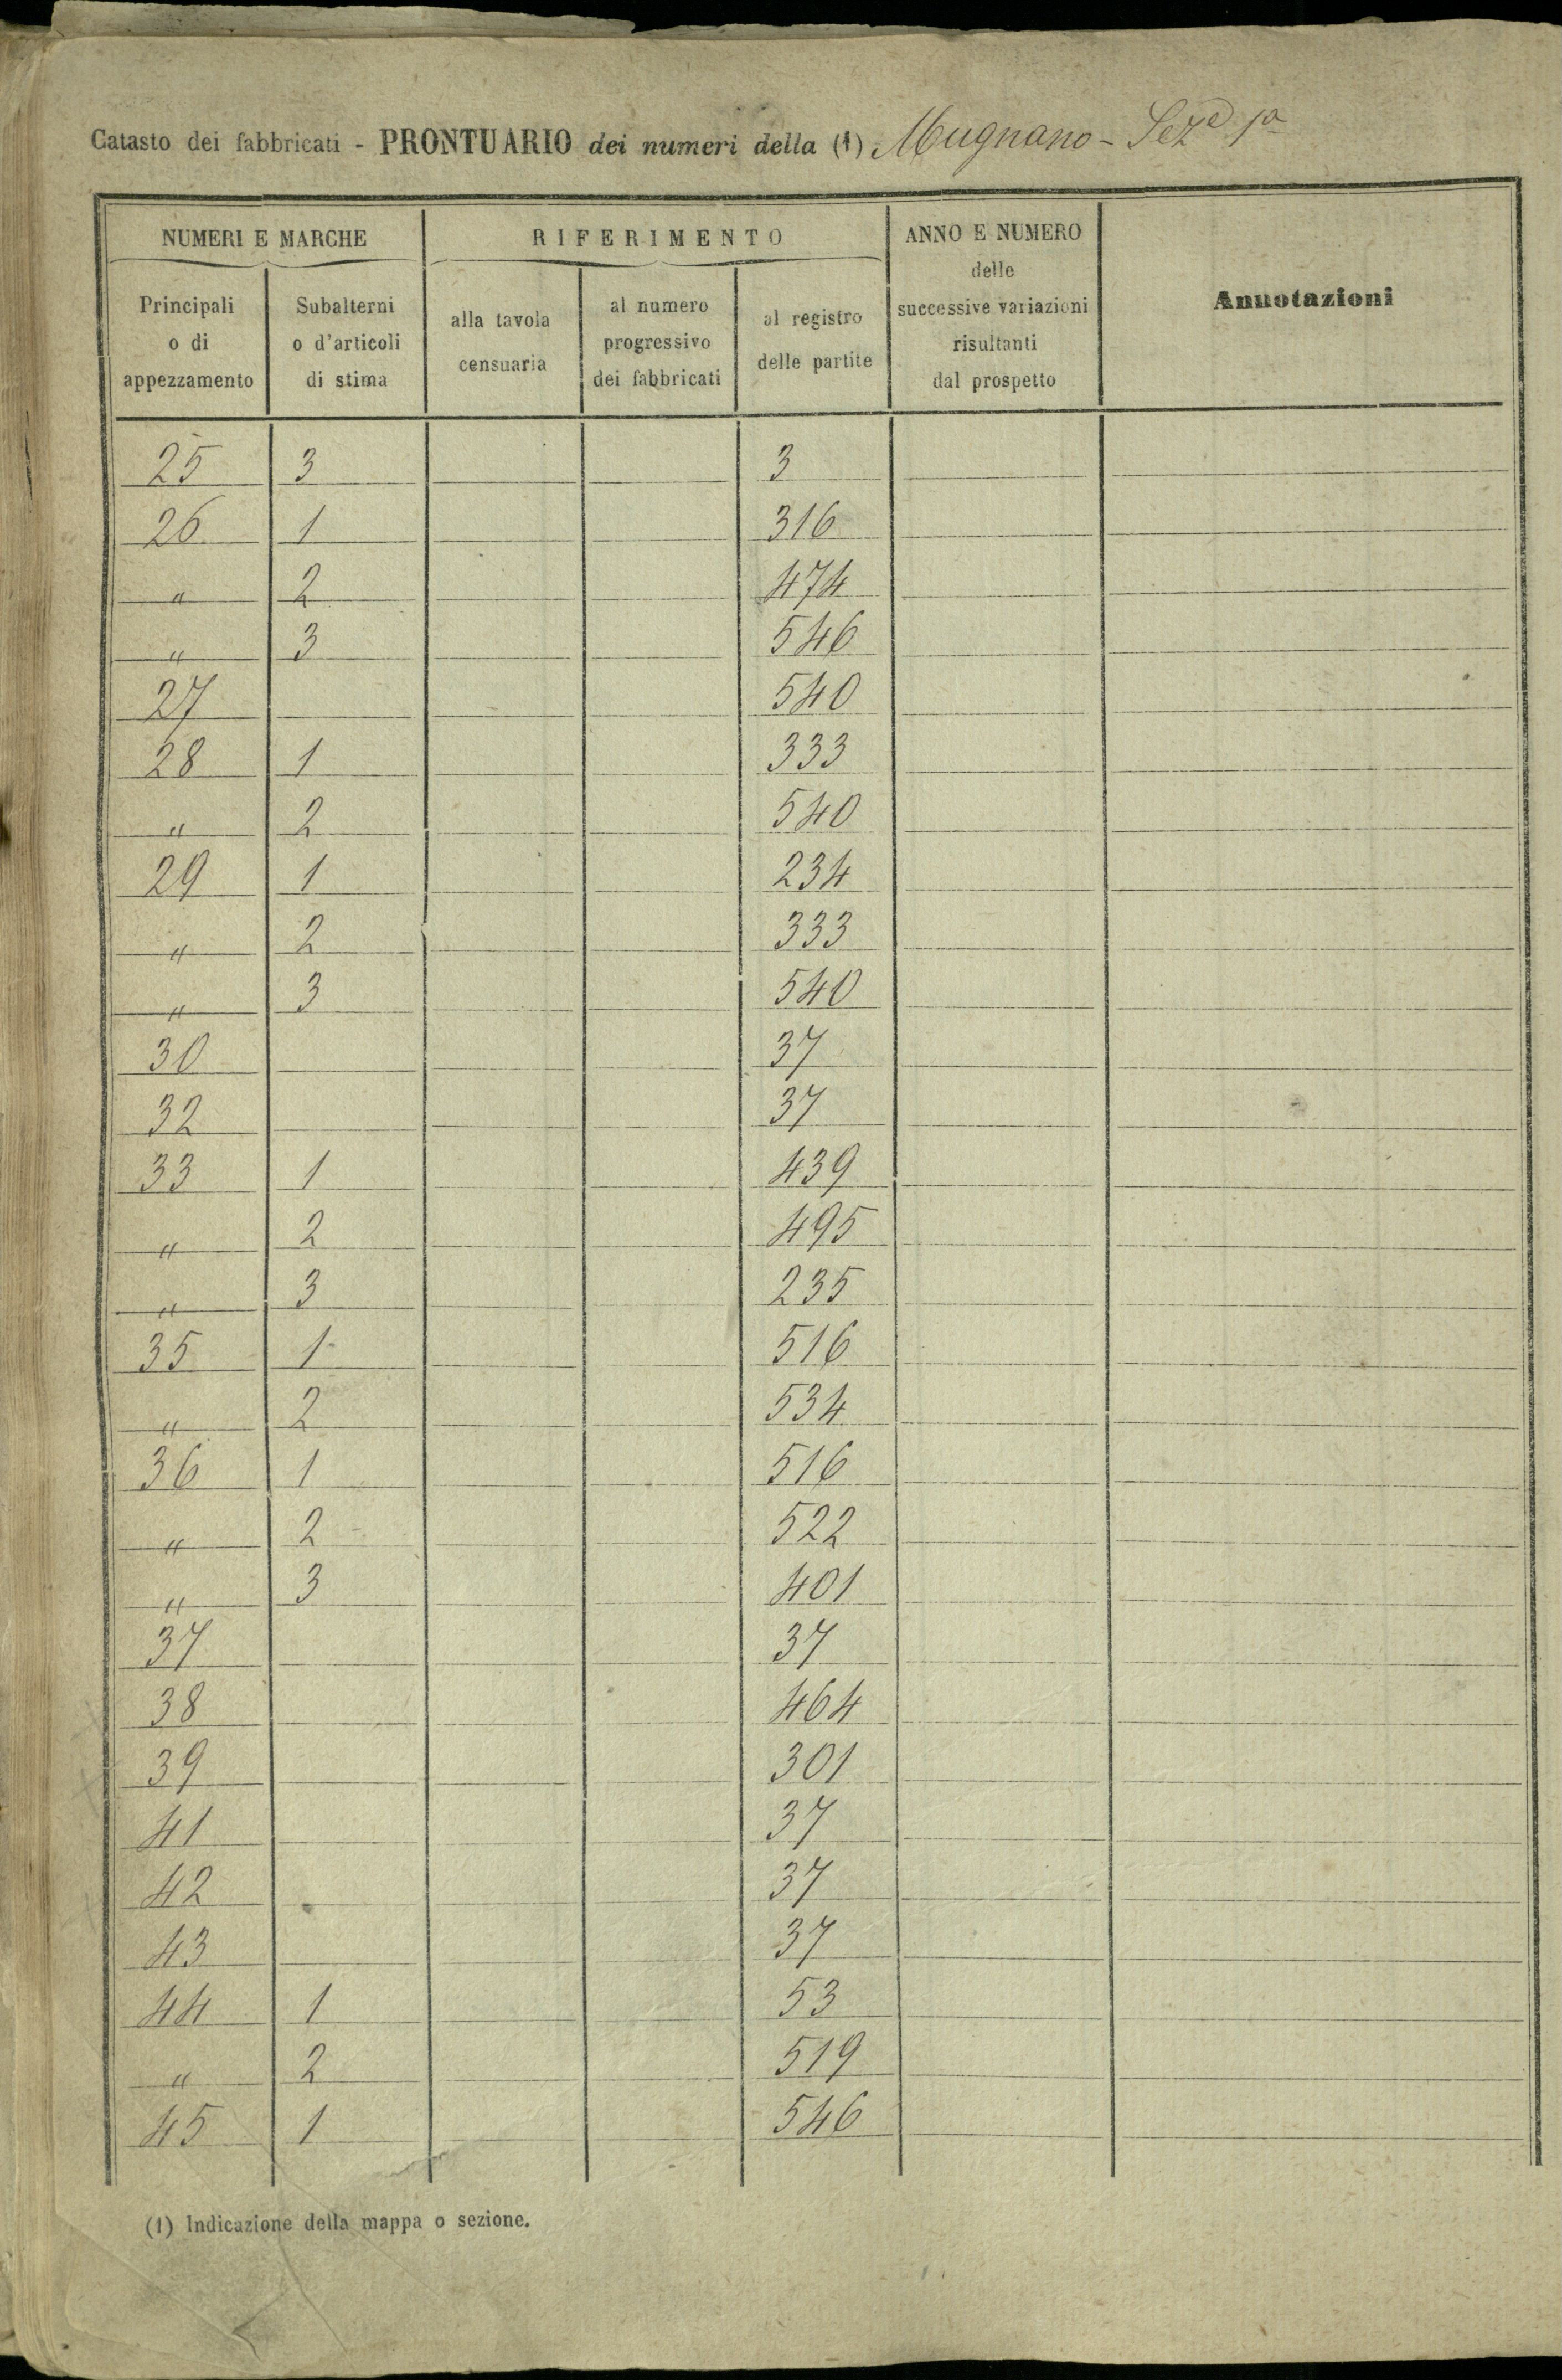 Catasto dei fabbricati - PRONTUARIO dei numeri della (1) Mugnano - Sez.e 1a
NUMERI E MARCHE RIFERIMENTO ANNO E NUMERO delle successive variazioni risultanti dal prospetto Annotazioni
Principali o di appezzamento Subalterni o d'articoli di stima alla tavola censuaria al numero progressivo dei fabbricati al registro delle partite
25 3 3
26 1 316
" 2 474
" 3 546
27 540
28 1 333
" 2 540
29 1 234
" 2 333
" 3 540
30 37
32 37
33 1 439
" 2 495
" 3 235
35 1 516
" 2 534
36 1 516
" 2 522
" 3 401
37 37
38 464
39 301
41 37
42 37
43 37
44 1 53
" 2 519
45 1 546
(1) Indicazione della mappa o sezione.